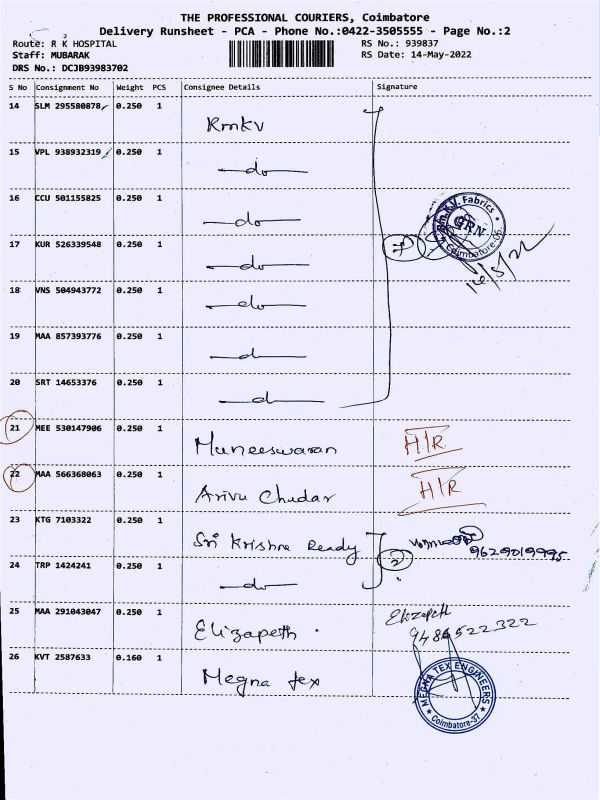 THE PROFESSIONAL COURIERS, Coimbatore
Delivery Runsheet - PCA - Phone No.:0422-3505555 - Page No.:2
Route: R K HOSPITAL RS No.: 939837
Staff: MUBARAK RS Date: 14-May-2022
DRS No.: DCJB93983702
S No Consignment No Weight PCS Consignee Details Signature
14 SLM 295580878 0.250 1 Rmkv
15 VPL 938932319 0.250 1 do
16 CCU 501155825 0.250 1 do
17 KUR 526339548 0.250 1 do
18 VNS 504943772 0.250 1 do
19 MAA 857393776 0.250 1 do
20 SRT 14653376 0.250 1 do
7
Rm.K.V. Fabrics
GRN
Coimbatore
21 MEE 530147906 0.250 1 Muneeswaran H/R
22 MAA 566368063 0.250 1 Arivu Chudar H/R
23 KTG 7103322 0.250 1 Sri Krishna Ready
9629019995
24 TRP 1424241 0.250 1 do 2
25 MAA 291043047 0.250 1 Elizapeth Elizapeth
9486522322
26 KVT 2587633 0.160 1 Megna tex
MEGNA TEX ENGINEERS
Coimbatore-37